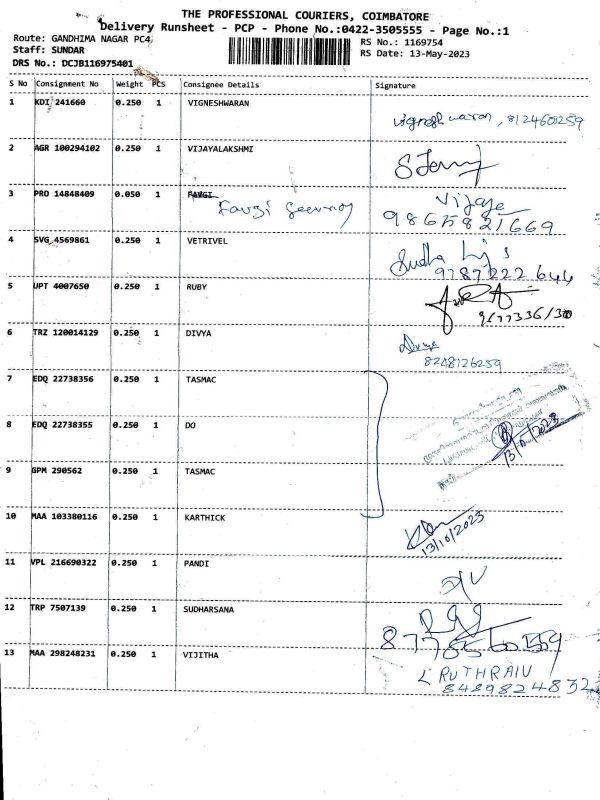 THE PROFESSIONAL COURIERS, COIMBATORE
Delivery Runsheet - PCP - Phone No.:0422-3505555 - Page No.:1
Route: GANDHIMA NAGAR PC4
RS No.: 1169754
Staff: SUNDAR
RS Date: 13-May-2023
DRS No.: DCJB116975401
S No Consignment No Weight PCS Consignee Details Signature
1 KDI 241660 0.250 1 VIGNESHWARAN
Vignesh waran, 8124603259
2 AGR 100294102 0.250 1 VIJAYALAKSHMI
3 PRO 14848409 0.050 1 FAVGI
Favgi
9865821669
4 SVG 4569861 0.250 1 VETRIVEL
Sudha
9787222644
5 UPT 4007650 0.250 1 RUBY
6 TRZ 120014129 0.250 1 DIVYA
Divya
8248126259
7 EDQ 22738356 0.250 1 TASMAC
8 EDQ 22738355 0.250 1 DO
9 GPM 290562 0.250 1 TASMAC
10 MAA 103380116 0.250 1 KARTHICK
13/10/2023
11 VPL 216690322 0.250 1 PANDI
12 TRP 7507139 0.250 1 SUDHARSANA
13 MAA 298248231 0.250 1 VIJITHA
8489824832